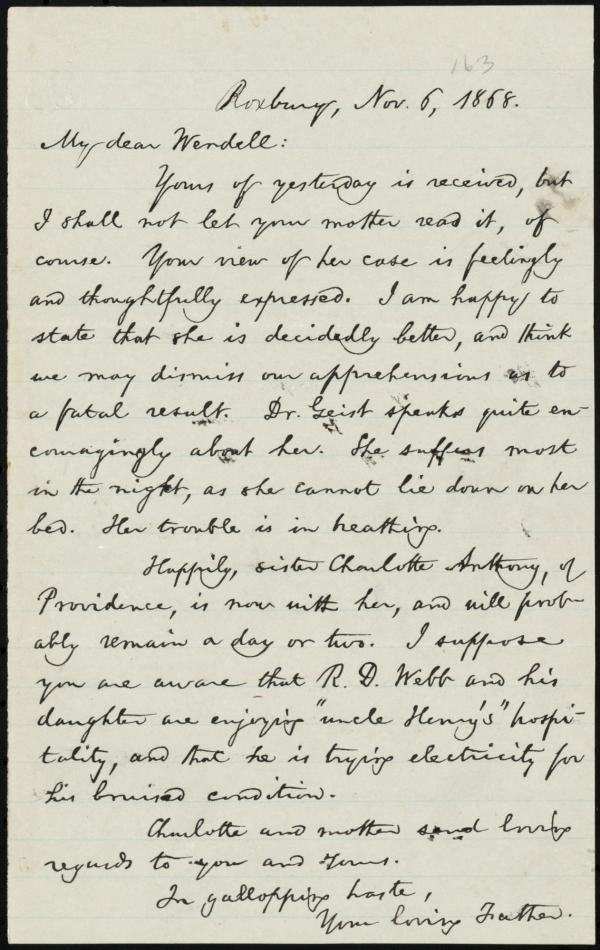 163
Roxbury, Nov. 6, 1868.
My dear Wendell:
Yours of yesterday is received, but
I shall not let your mother read it, of
course. Your view of her case is feelingly
and thoughtfully expressed. I am happy to
state that she is decidedly better, and think
we may dismiss our apprehensions as to
a fatal result. Dr. Geist speaks quite en-
couragingly about her. She suffers most
in the night, as she cannot lie down on her
bed. Her trouble is in breathing.
Happily, sister Charlotte Anthony, of
Providence, is now with her, and will prob-
ably remain a day or two. I suppose
you are aware that R. D. Webb and his
daughter are enjoying "uncle Henry's" hospi-
tality, and that he is trying electricity for
his bruised condition.
Charlotte and mother send loving
regards to you and yours.
In gallopping haste,
Your loving Father.